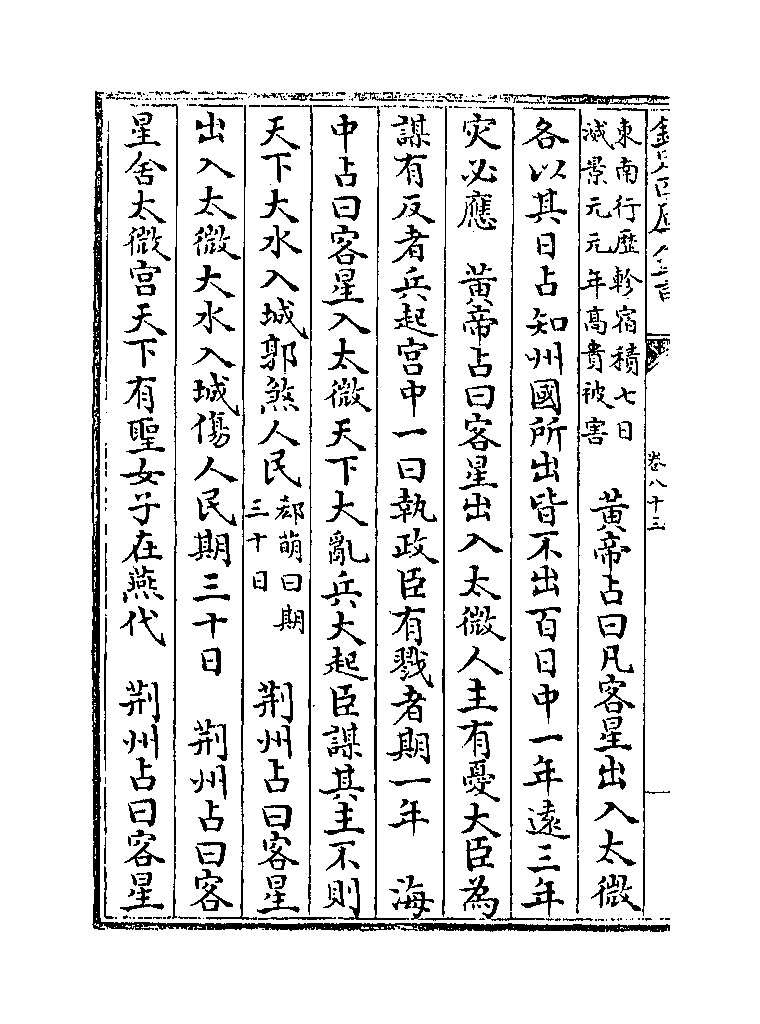 欽定四庫全書
卷八十三
東南行歷軫宿積七日
滅景元元年高貴被害
黄帝占曰凡客星出入太微
各以其日占知州國所出皆不出百日中一年逺三年
灾必應　黄帝占曰客星出入太微人主有憂大臣為
謀有反者兵起宫中一曰執政臣有戮者期一年　海
中占曰客星入太微天下大亂兵大起臣謀其主不則
天下大水入城郭煞人民
郄萌曰期
三十日
荆州占曰客星
出入太微大水入城傷人民期三十日　荆州占曰客
星舍太微宫天下有聖女子在燕代　荆州占曰客星